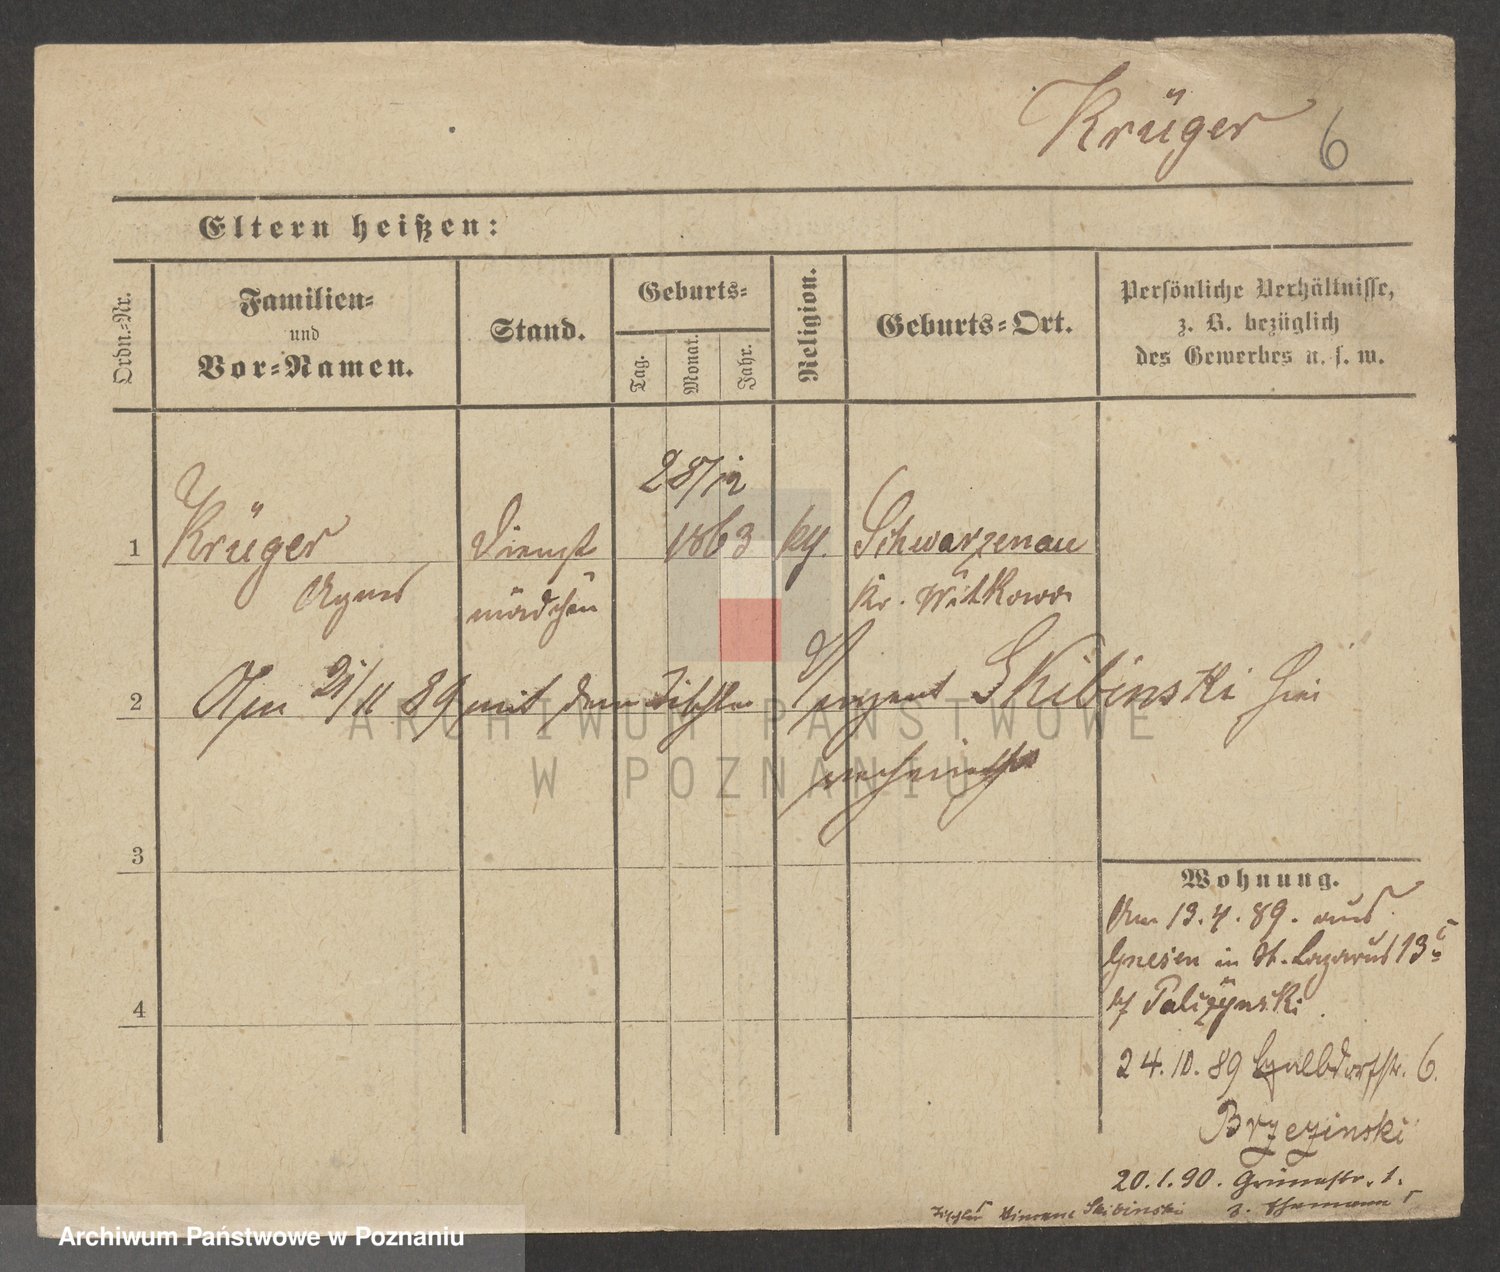 Krüger 6
Eltern heißen:
Ordn.-Nr.
Familien-
und
Vor-Namen.
Stand.
Geburts-
Tag.
Monat.
Jahr.
Religion.
Geburts-Ort.
Persönliche Verhältnisse,
z. B. bezüglich
des Gewerbes u. s. w.
28/12
1 Krüger Dienst 1863 Schwarzenau
Agnes mädchen Kr. Witkowo
2 Am 21/11 89 mit dem Tischler Skibinski hier
ARCHIWUM PAŃSTWOWE
W POZNANIU
3
Wohnung.
Am 13.4.89. aus
Gnesen in St. Lazarus 13
4
24.10.89 Halbdorfstr. 6.
Brzezinski
20.1.90. Grünestr. 1.
Tischler Skibinski
Archiwum Państwowe w Poznaniu